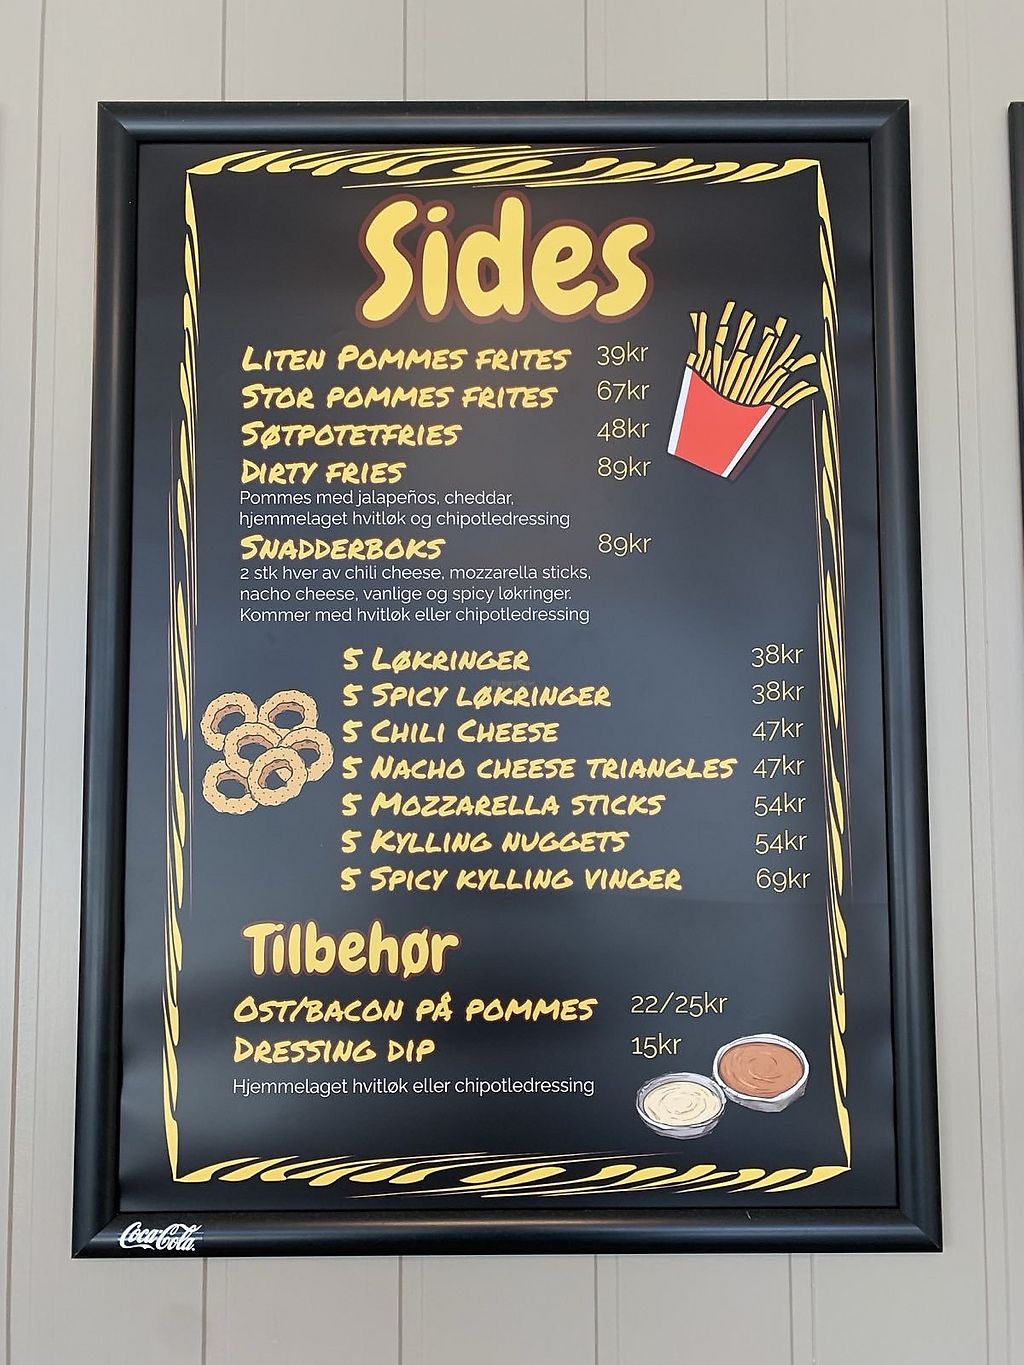 Sides
LITEN POMMES FRITES 39kr
STOR POMMES FRITES 67kr
SØTPOTETFRIES 48kr
DIRTY FRIES 89kr
Pommes med jalapeños, cheddar,
hjemmelaget hvitløk og chipotledressing
SNADDERBOKS 89kr
2 stk hver av chili cheese, mozzarella sticks,
nacho cheese, vanlige og spicy løkringer.
Kommer med hvitløk eller chipotledressing
5 LØKRINGER 38kr
5 SPICY LØKRINGER 38kr
5 CHILI CHEESE 47kr
5 NACHO CHEESE TRIANGLES 47kr
5 MOZZARELLA STICKS 54kr
5 KYLLING NUGGETS 54kr
5 SPICY KYLLING VINGER 69kr
Tilbehør
OST/BACON PÅ POMMES 22/25kr
DRESSING DIP 15kr
Hjemmelaget hvitløk eller chipotledressing
Coca-Cola